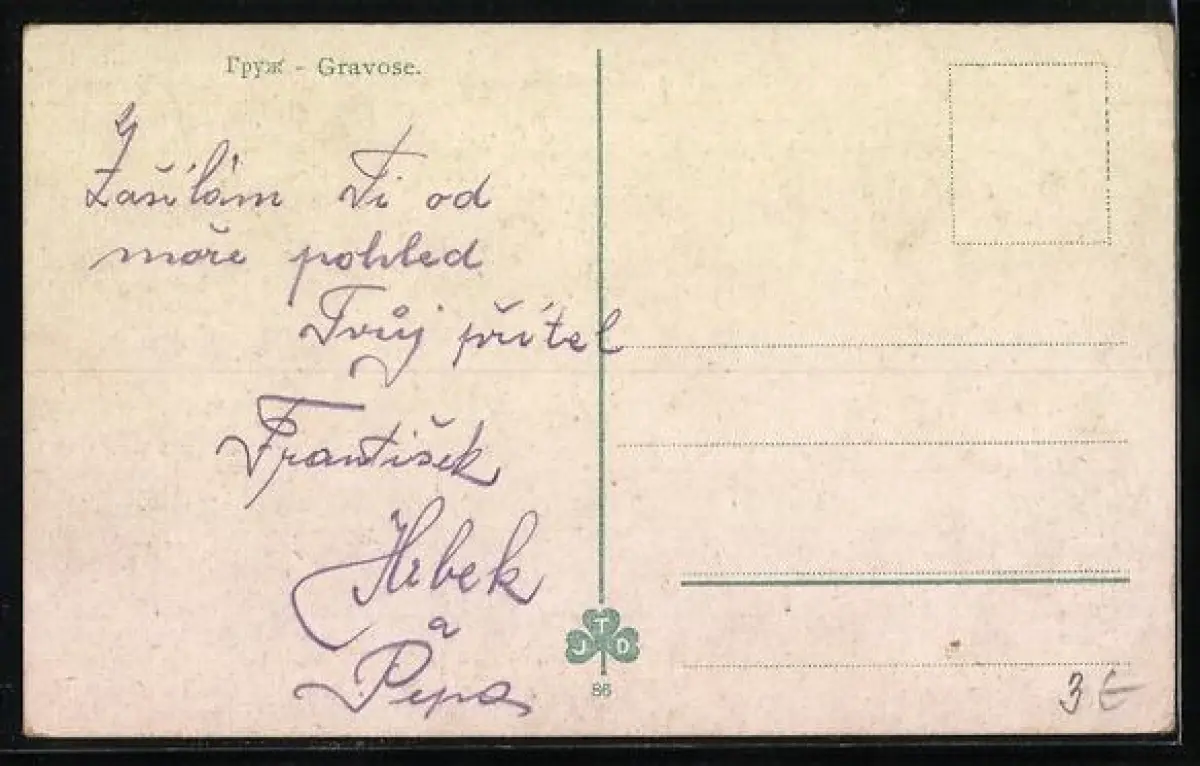 Груж - Gravose.
Zasílám Ti od
moře pohled
Tvůj přítel
František
Hrbek
a
Pepa
J T D
86
3 €